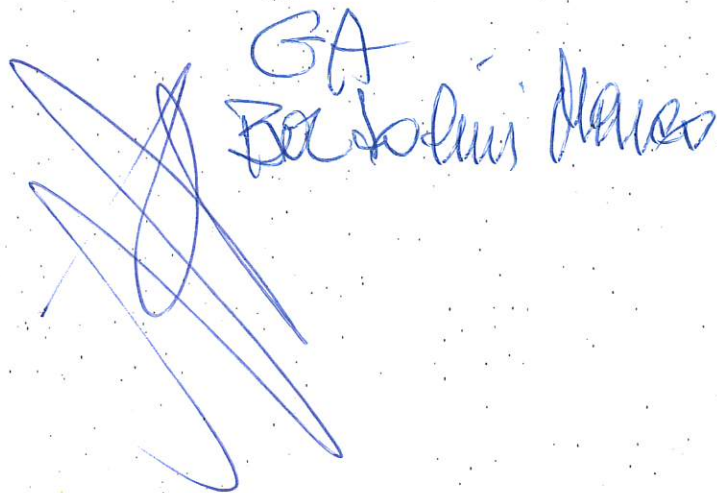 GA
Bortolini Marco